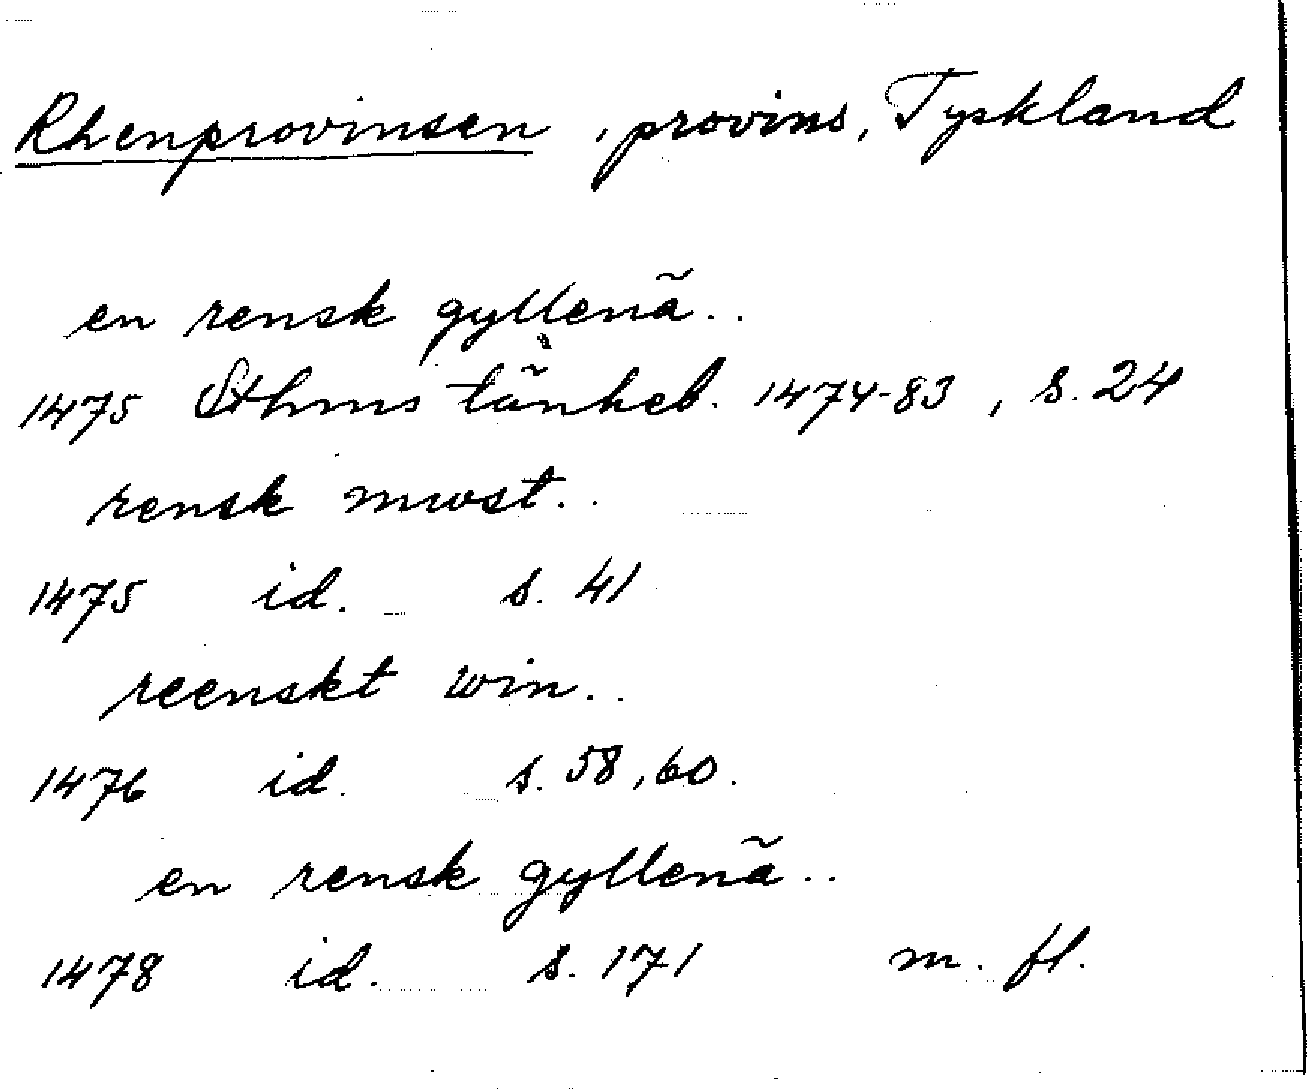 Rhenprovinsen, provins, Tyskland
en rensk gyllenã..
1475 Sthms tänkeb. 1474-83, s. 24
rensk mwst..
1475 id. s. 41
reenskt win..
1476 id. s. 58, 60.
en rensk gyllenã..
1478 id. s. 171 m. fl.